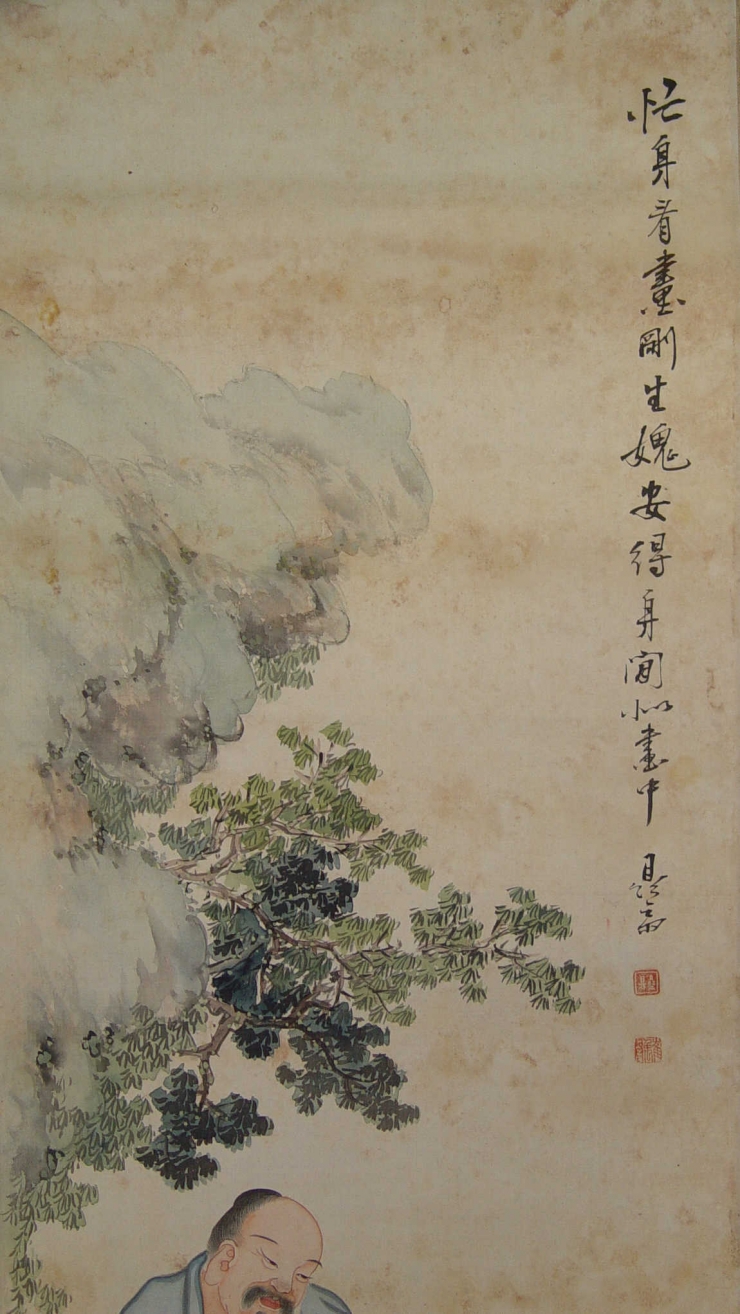 忙身看畫剛生媿安得身閒似畫中